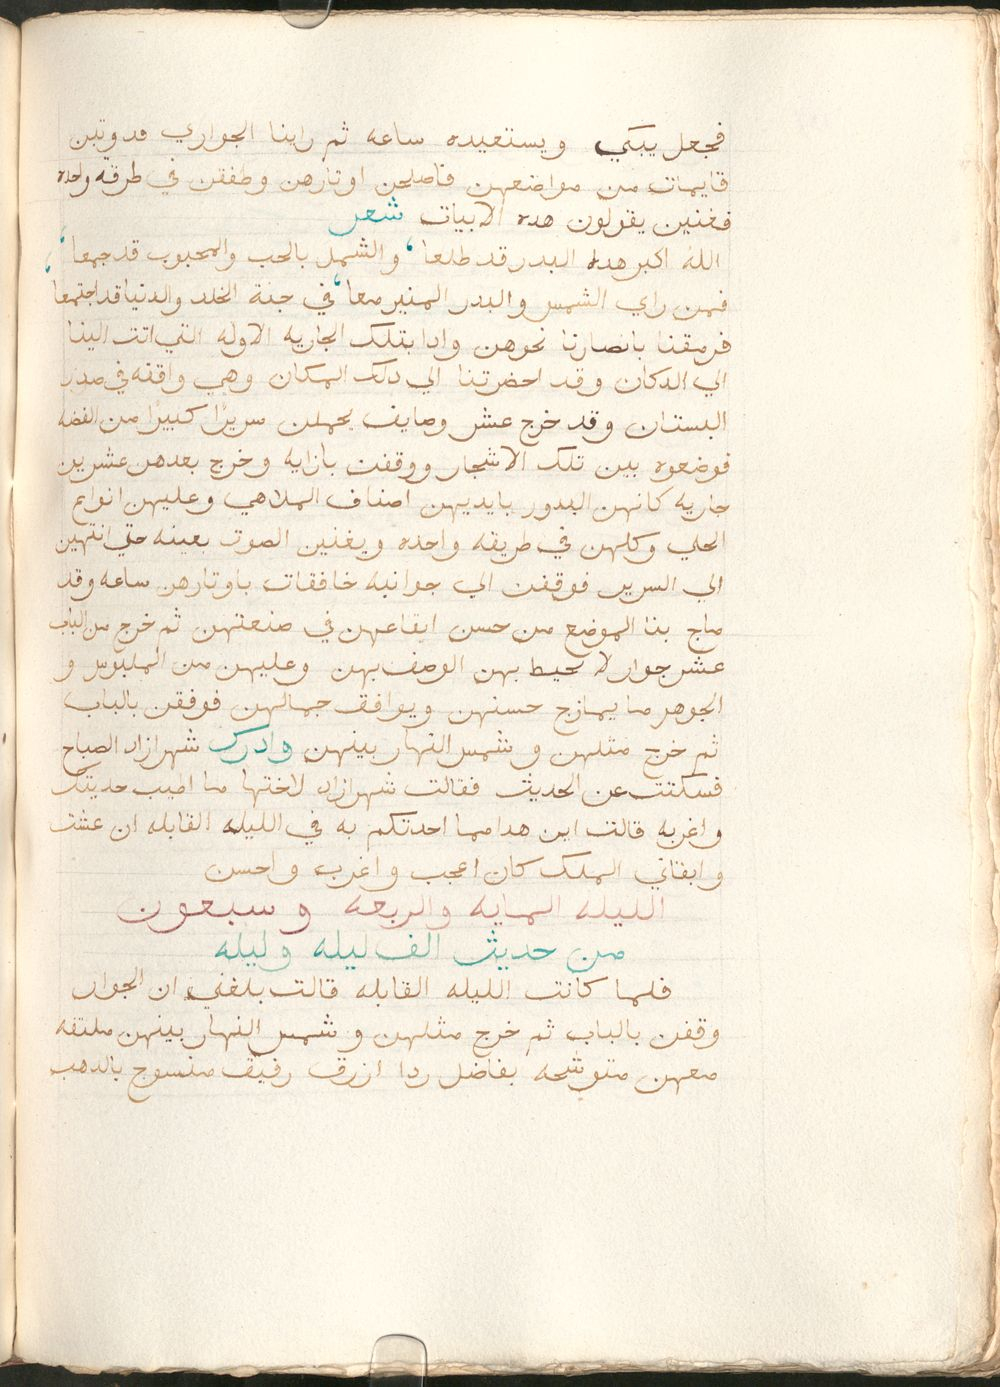 فجعل يبكي ويستعيده ساعه ثم راينا الجواري قد وتبن
قايمات من مواضعهن فاصلحن اوتارهن وطفقن في طرقه واحده
فغنين يقولون هده الابيات شعر
الله اكبر هدا البدر قد طلعا والشمل بالحب والمحبوب قد جمعا
فمن راي الشمس والبدر المنير معا في جنة الخلد والدنيا قد اجتمعا
فرمقنا بانصارنا نحوهن وادا بتلك الجاريه الاوله التي اتت الينا
الي الدكان وقد احضرتنا الي دلك المكان وهي واقفه في صدر
البستان وقد خرج عشر وصايف يحملن سريرًا كبيرًا من الفضه
فوضعوه بين تلك الاشجار ووقفت بازايه وخرج بعدهن عشرين
جاريه كانهن البدور بايديهن اصناف الملاهي وعليهن انواع
الحلي وكلهن في طريقه واحده ويغنين الصوت بعينه حتي انتهين
الي السرير فوقفن الي جوانبه خافقات باوتارهن ساعه وقد
ماج بنا الموضع من حسن ايقاعهن في صنعتهن ثم خرج من الباب
عشر جوار لا يحيط بهن الوصف بهن وعليهن من الملبوس و
الجوهر ما يمازج حسنهن ويوافق جمالهن فوفقن بالباب
ثم خرج مثلهن وشمس النهار بينهن وادرك شهرازاد الصباح
فسكتت عن الحديث فقالت شهرازاد لاختها ما اطيب حديتك
واغربه قالت اين هدا مما احدتكم به في الليله القابله ان عشت
وابقاني الملك كان اعجب واغرب واحسن
الليله المايه والربعه وسبعون
من حديث الف ليله وليله
فلما كانت الليله القابله قالت بلغني ان الجوار
وقفن بالباب ثم خرج مثلهن وشمس النهار بينهن ملتفه
معهن متوشحه بفاضل ردا ازرق رفيق منسوج بالدهب